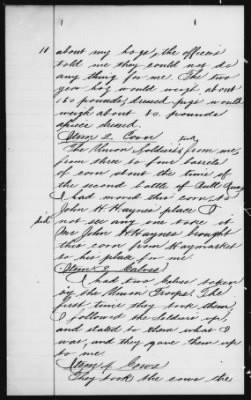 11 about my hogs, the officer
told me they could not do
any thing for me. The two
year hog would weigh about
150 pounds, dressed. pigs would
weigh about 80 pounds
apiece dressed.
Item 2. Corn
The Union Soldiers took from me,
from three to four barrels
of corn about the time of
the second battle of Bull Run,
I had moved this corn to
John H. Haynes place I
did not see any one take it
One John H Haynes brought
this corn from Haymarket
to his place for me.
Item 3 Calves
I had two Calves taken
by the Union Troops. The
first time they took them,
I followed the Soldiers up,
and stated to them what I
was, and they gave them up
to me.
Item 4 Cows
They took the cows the